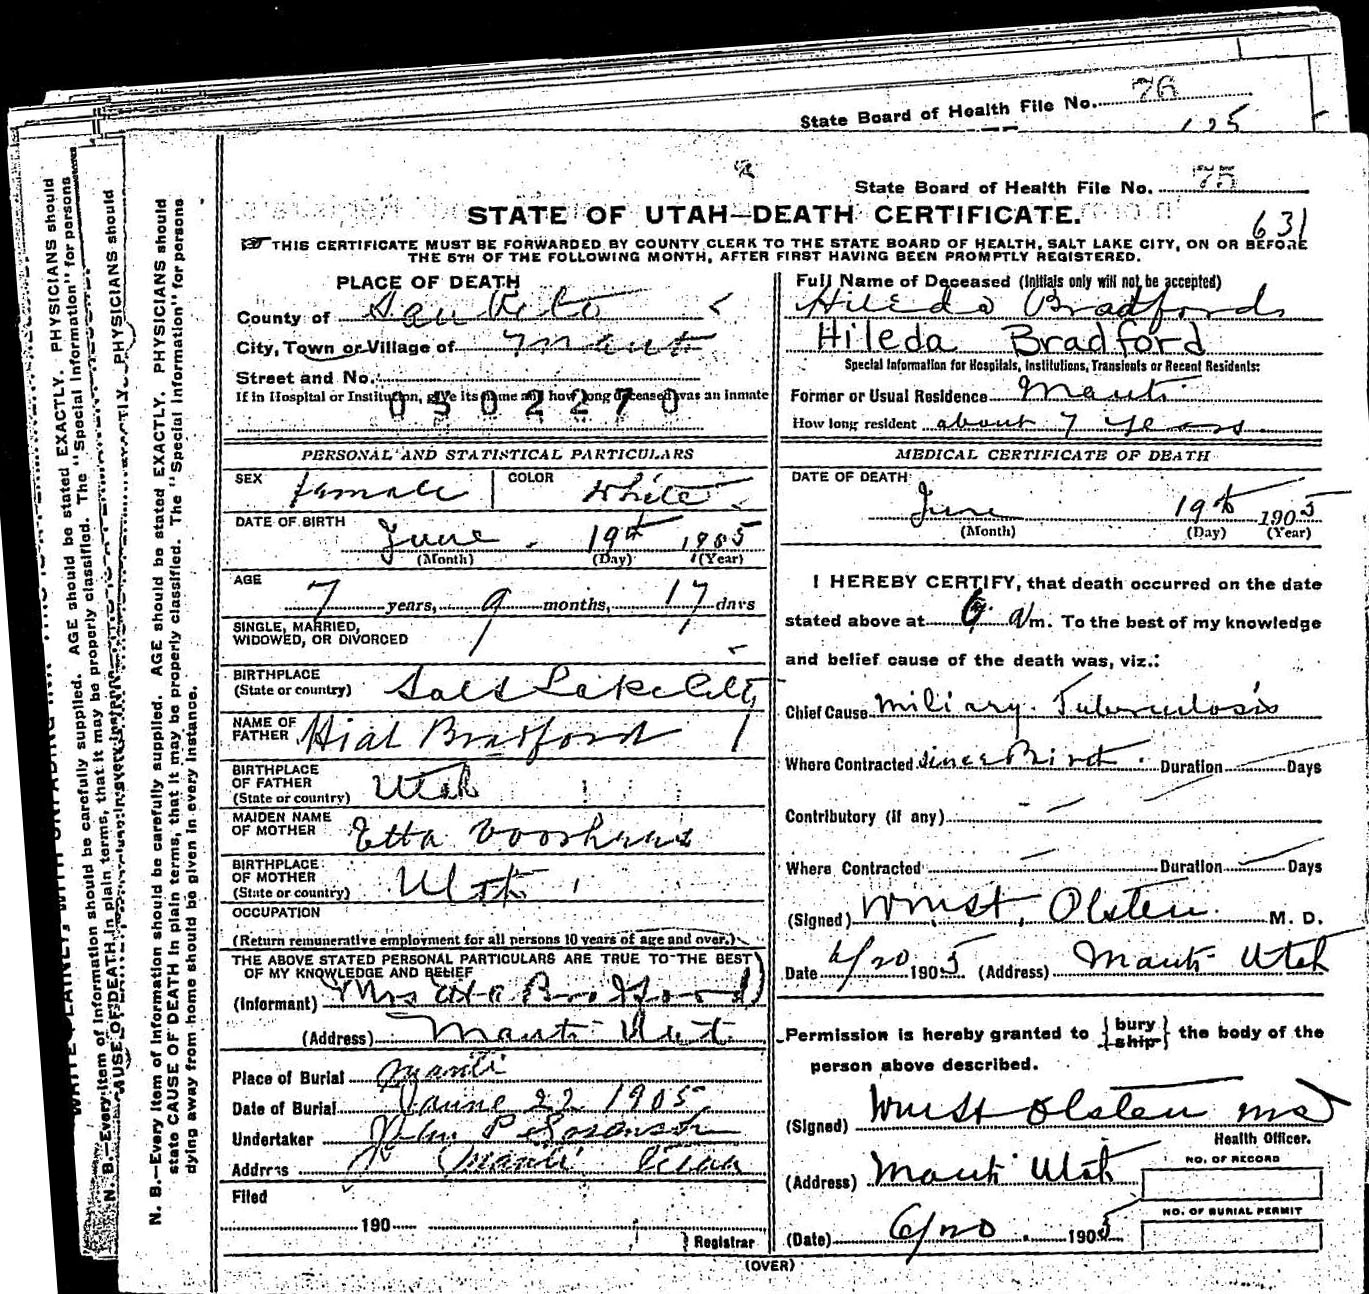 State Board of Health File No. 76
125
State Board of Health File No. 75
STATE OF UTAH—DEATH CERTIFICATE.
631
THIS CERTIFICATE MUST BE FORWARDED BY COUNTY CLERK TO THE STATE BOARD OF HEALTH, SALT LAKE CITY, ON OR BEFORE
THE 5TH OF THE FOLLOWING MONTH, AFTER FIRST HAVING BEEN PROMPTLY REGISTERED.
PLACE OF DEATH
County of San Pete
City, Town or Village of Manti
Street and No.
If in Hospital or Institution, give its name and how long deceased was an inmate
0502270
Full Name of Deceased (Initials only will not be accepted)
Hileda Bradford
Hileda Bradford
Special Information for Hospitals, Institutions, Transients or Recent Residents:
Former or Usual Residence Manti
How long resident about 7 years
PERSONAL AND STATISTICAL PARTICULARS
SEX female COLOR white
DATE OF BIRTH June 19th 1905
(Month) (Day) (Year)
AGE 7 years, 9 months, 17 days
SINGLE, MARRIED,
WIDOWED, OR DIVORCED
BIRTHPLACE
(State or country) Salt Lake City
NAME OF
FATHER Hial Bradford
BIRTHPLACE
OF FATHER
(State or country) Utah
MAIDEN NAME
OF MOTHER Etta Voorhees
BIRTHPLACE
OF MOTHER
(State or country) Utah
OCCUPATION
(Return remunerative employment for all persons 10 years of age and over.)
THE ABOVE STATED PERSONAL PARTICULARS ARE TRUE TO THE BEST
OF MY KNOWLEDGE AND BELIEF
(Informant) Mrs Etta Bradford
(Address) Manti Ut.
Place of Burial Manti
Date of Burial June 22 1905
Undertaker John P Sorenson
Address Manti Utah
Filed
190
Registrar
MEDICAL CERTIFICATE OF DEATH
DATE OF DEATH
June 19th 1905
(Month) (Day) (Year)
I HEREBY CERTIFY, that death occurred on the date
stated above at 6 a m. To the best of my knowledge
and belief cause of the death was, viz.:
Chief Cause Miliary Tuberculosis
Where Contracted since Birth Duration Days
Contributory (if any)
Where Contracted Duration Days
(Signed) Wm St. Olsten M. D.
Date 6/20 1905 (Address) Manti Utah
Permission is hereby granted to {bury ship} the body of the
person above described.
(Signed) Wm St Olsten MD
Health Officer.
(Address) Manti Utah
NO. OF RECORD
NO. OF BURIAL PERMIT
(Date) 6/20 1905
(OVER)
N. B.—Every item of information should be carefully supplied. AGE should be stated EXACTLY. PHYSICIANS should
state CAUSE OF DEATH in plain terms, that it may be properly classified. The "Special Information" for persons
dying away from home should be given in every instance.